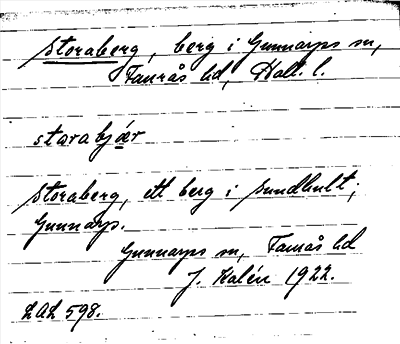 Storaberg, berg i Gunnarps sn,
Faurås hd, Hall. l.
storabjær
Storaberg, ett berg i Sundhult,
Gunnarp.
Gunnarps sn, Faurås hd
J. Kalén 1922.
LAL 598.